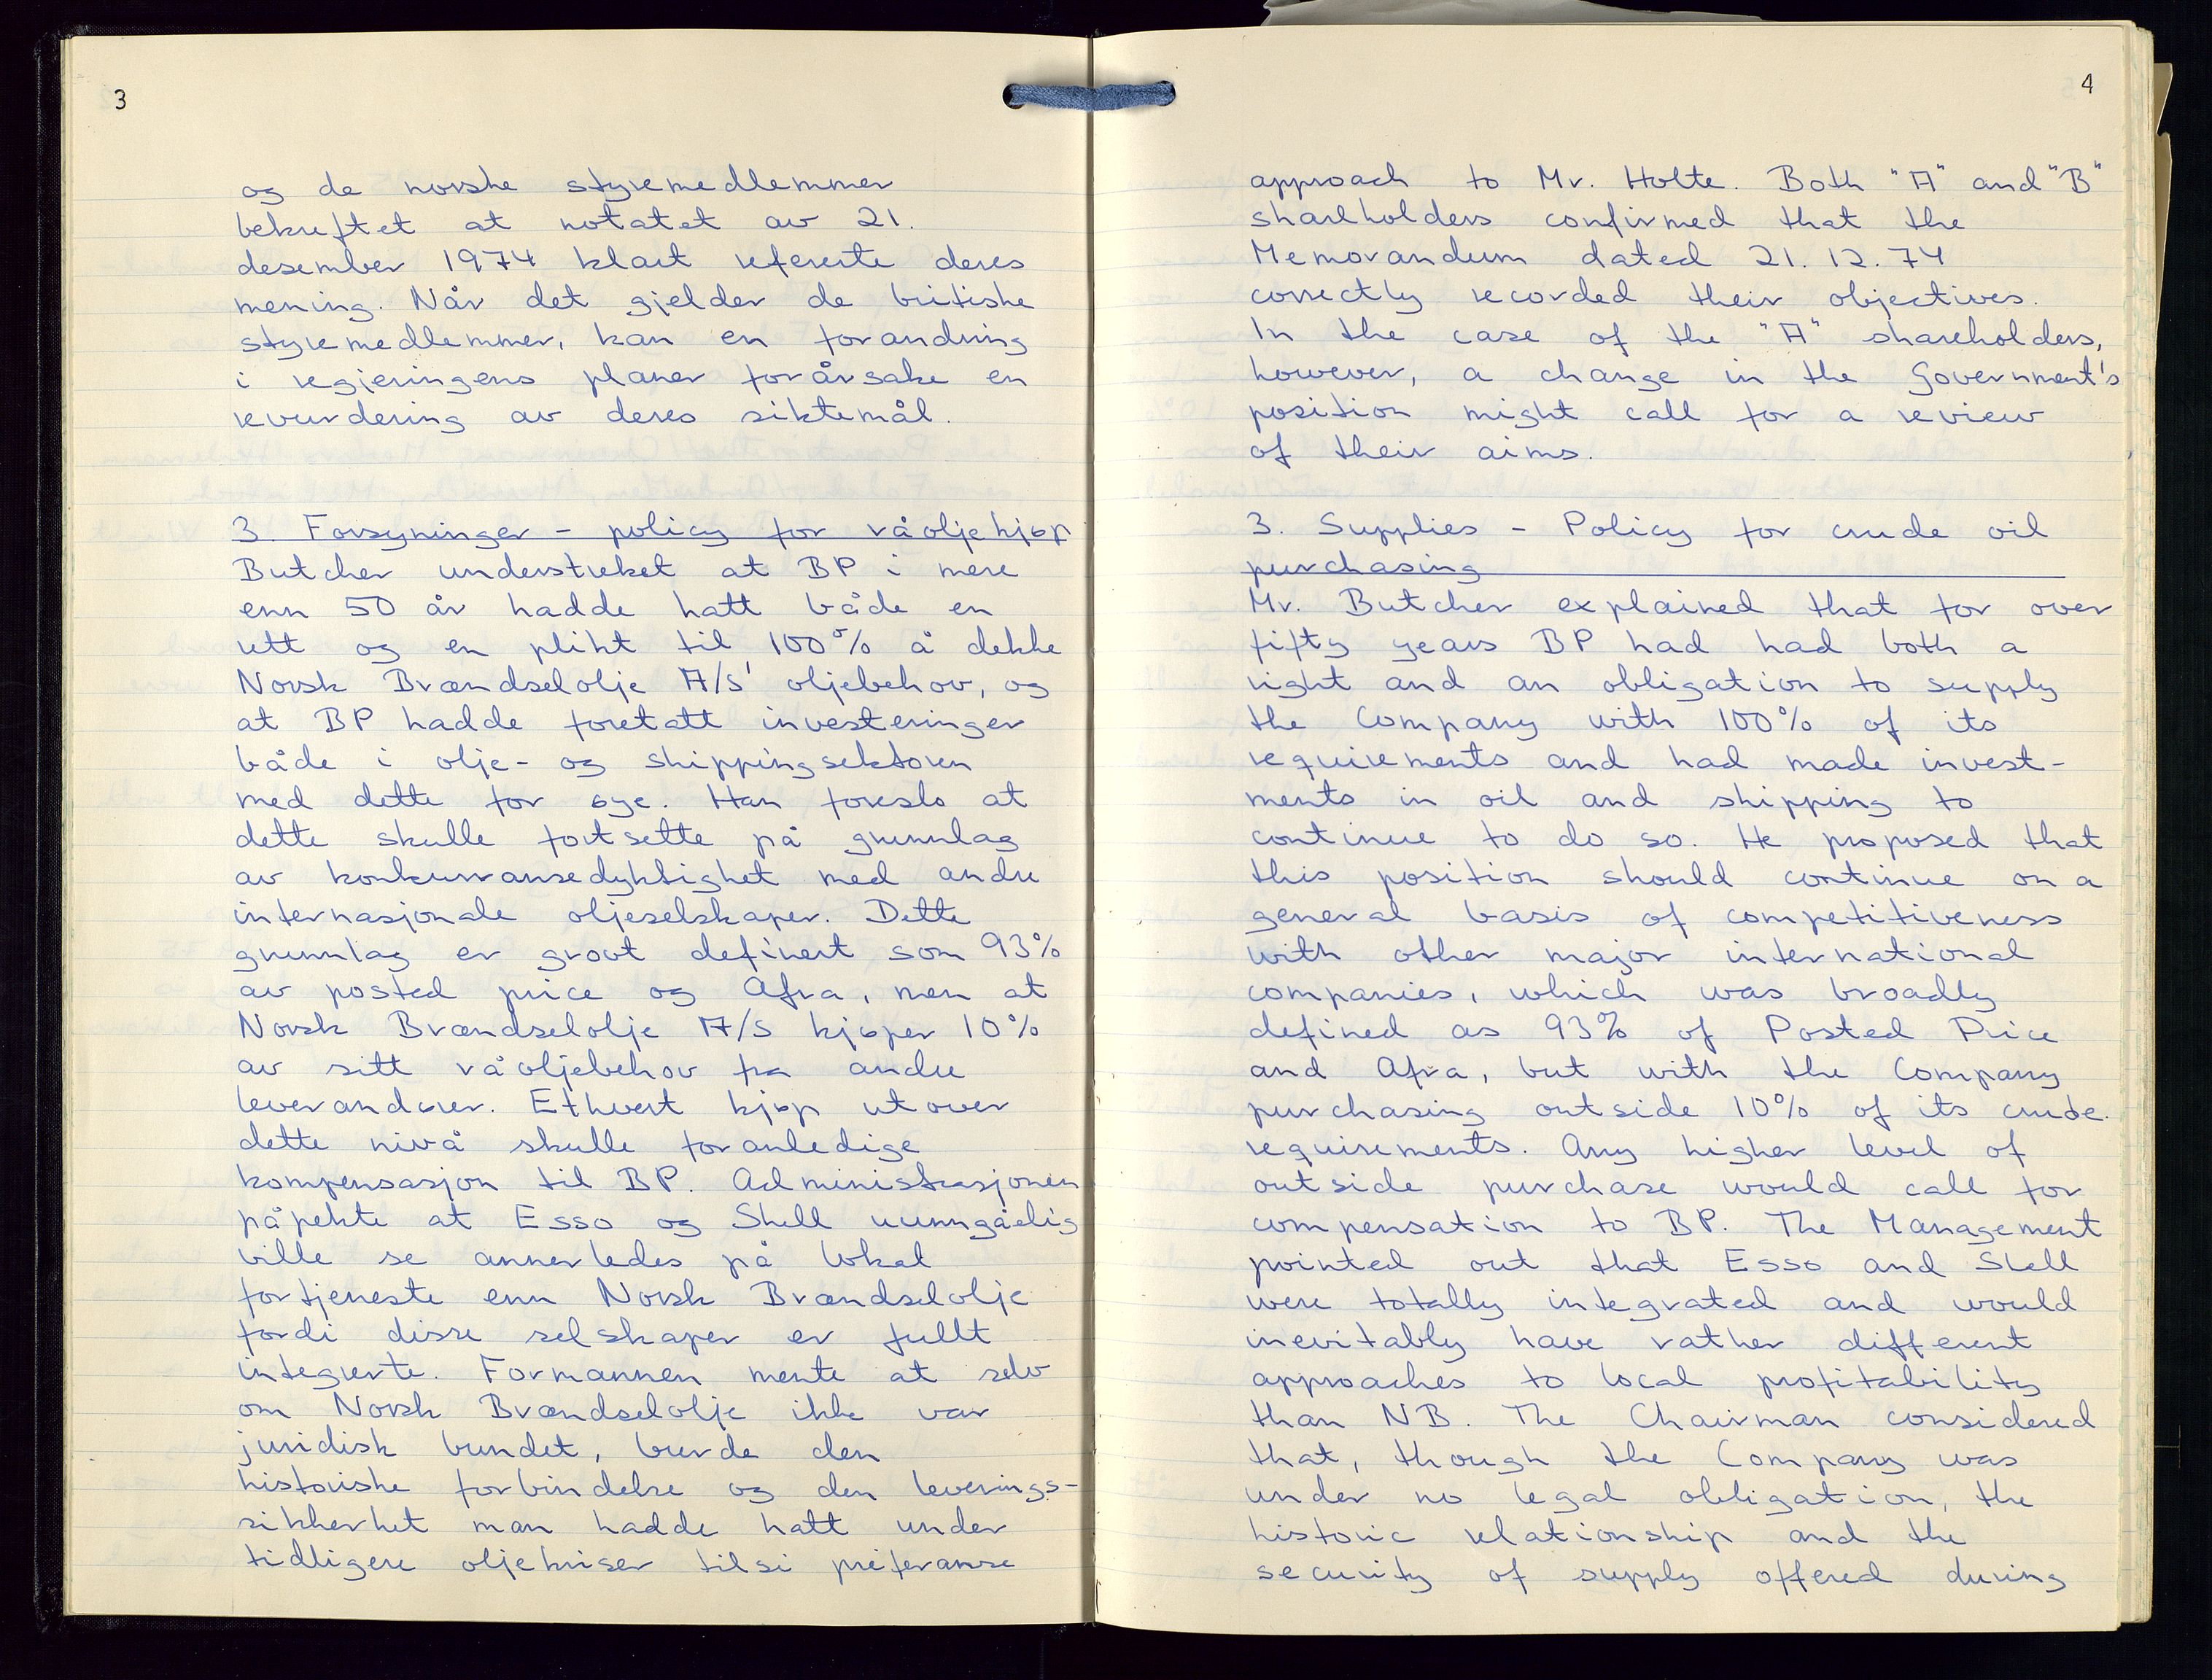 3
og de norske styremedlemmer
bekreftet at notatet av 21.
desember 1974 klart refererte deres
mening. Når det gjelder de britiske
styremedlemmer, kan en forandring
i regjeringens planer forårsake en
revurdering av deres siktemål.
3. Forsyninger - policy for råoljekjøp
Butcher understreket at BP i mere
enn 50 år hadde hatt både en
rett og en plikt til 100% å dekke
Norsk Brændselolje A/S' oljebehov, og
at BP hadde foretatt investeringer
både i olje- og shippingsektoren
med dette for øye. Han foreslo at
dette skulle fortsette på grunnlag
av konkurransedyktighet med andre
internasjonale oljeselskaper. Dette
grunnlag er grovt definert som 93%
av posted price og Afra, men at
Norsk Brændselolje A/S kjøper 10%
av sitt råoljebehov fra andre
leverandører. Ethvert kjøp utover
dette nivå skulle foranledige
kompensasjon til BP. Administrasjonen
påpekte at Esso og Shell uunngåelig
ville se annerledes på lokal
fortjeneste enn Norsk Brændselolje
fordi disse selskaper er fullt
integrerte. Formannen mente at selv
om Norsk Brændselolje ikke var
juridisk bundet, burde den
historiske forbindelse og den leverings-
sikkerhet man hadde hatt under
tidligere oljekriser tilsi preferanse
4
approach to Mr. Holte. Both "A" and "B"
shareholders confirmed that the
Memorandum dated 21.12.74
correctly recorded their objectives.
In the case of the "A" shareholders,
however, a change in the Government's
position might call for a review
of their aims.
3. Supplies - Policy for crude oil
purchasing
Mr. Butcher explained that for over
fifty years BP had had both a
right and an obligation to supply
the Company with 100% of its
requirements and had made invest-
ments in oil and shipping to
continue to do so. He proposed that
this position should continue on a
general basis of competitiveness
with other major international
companies, which was broadly
defined as 93% of Posted Price
and Afra, but with the Company
purchasing outside 10% of its crude
requirements. Any higher level of
outside purchase would call for
compensation to BP. The Management
pointed out that Esso and Shell
were totally integrated and would
inevitably have rather different
approaches to local profitability
than NB. The Chairman considered
that, though the Company was
under no legal obligation, the
historic relationship and the
security of supply offered during